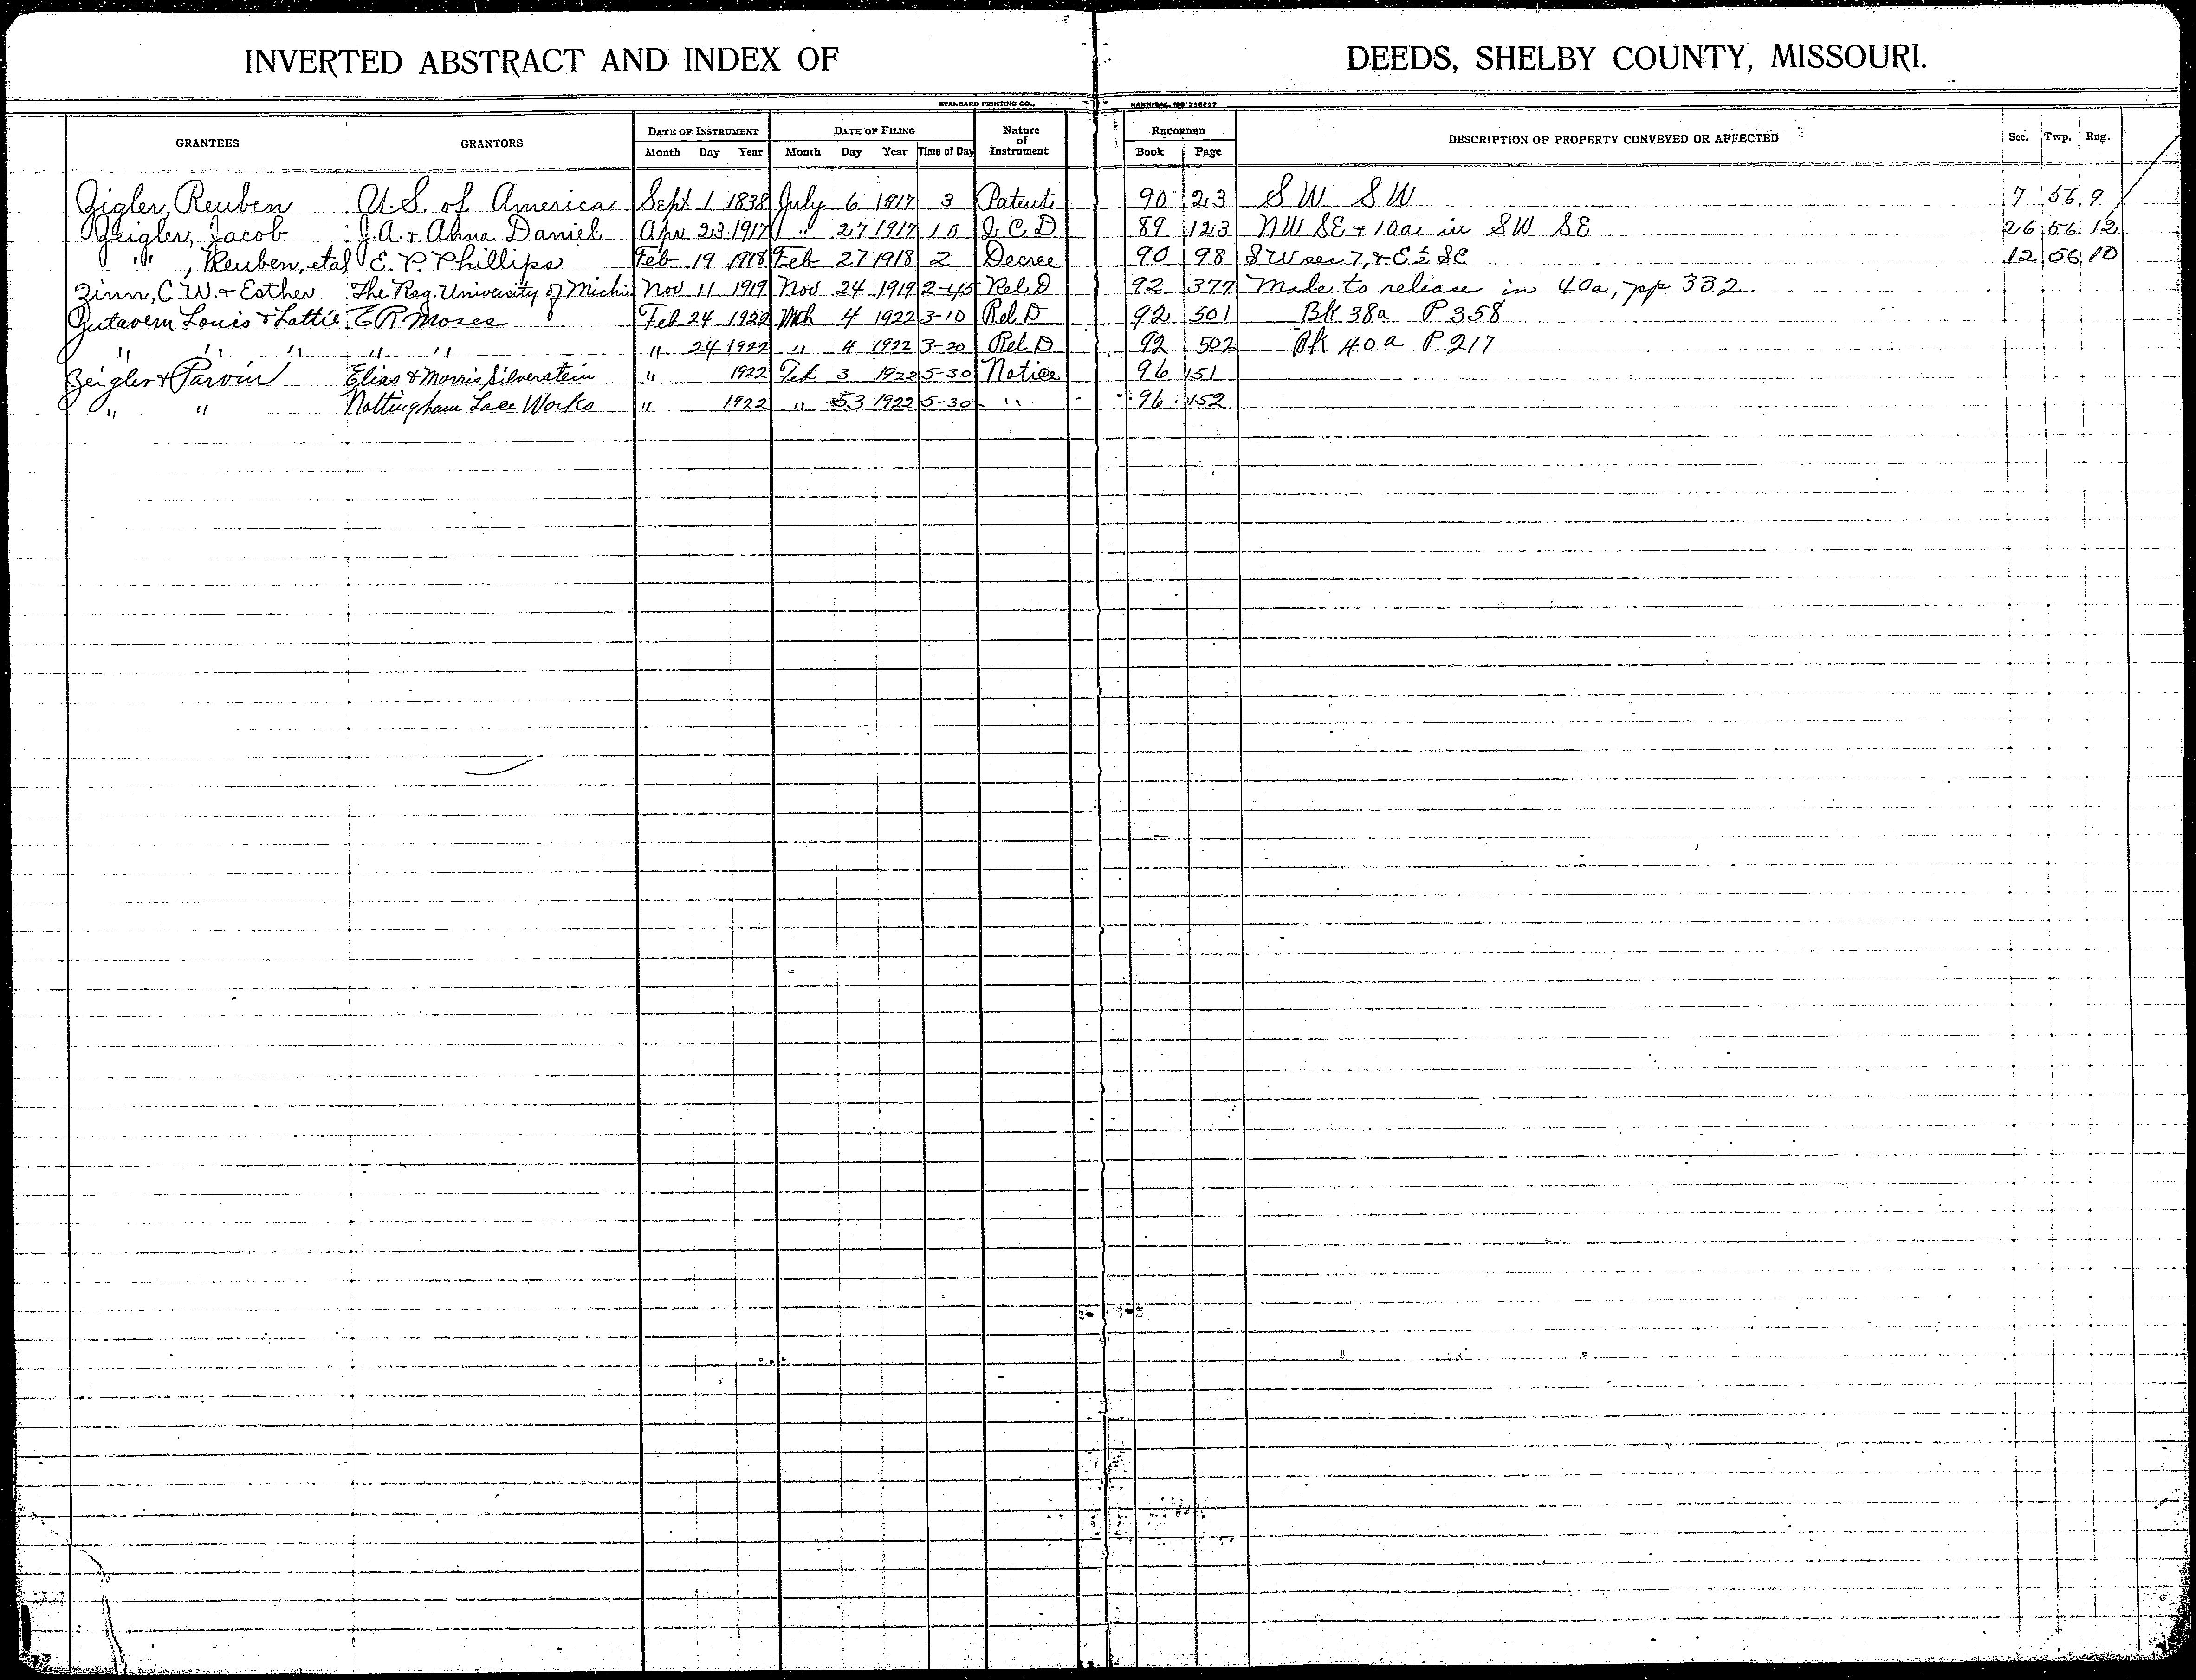 INVERTED ABSTRACT AND INDEX OF DEEDS, SHELBY COUNTY, MISSOURI.
STANDARD PRINTING CO., HANNIBAL, MO
GRANTEES GRANTORS DATE OF INSTRUMENT DATE OF FILING Nature of Instrument RECORDED DESCRIPTION OF PROPERTY CONVEYED OR AFFECTED Sec. Twp. Rng.
Month Day Year Month Day Year Time of Day Book Page
Zigler, Reuben U.S. of America Sept 1 1838 July 6 1917 3 Patent 90 23 S W S W 7 56 9
Zeigler, Jacob J.A. + Anna Daniel Apr 23 1917 " 27 1917 10 Q C D 89 123 NW SE + 10a in SW SE 26 56 12
" , Reuben, etal E. P. Phillips Feb 19 1918 Feb 27 1918 2 Decree 90 98 SW sec 7, + E ½ SE 12 56 10
Zinn, C. W. + Esther The Reg. University of Michi Nov 11 1919 Nov 24 1919 2-45 Rel D 92 377 Made to release in 40a, pp 332.
Zutavern Louis & Lottie E R Moses Feb 24 1922 Mch 4 1922 3-10 Rel D 92 501 Bk 38a P 358
" " " " " " 24 1922 " 4 1922 3-20 Rel D 92 502 Bk 40a P 217
Zeigler & Parvin Elias & Morris Silverstein " 1922 Feb 3 1922 5-30 Notice 96 151
" " Nottingham Lace Works " 1922 " 3 1922 5-30 " 96 152